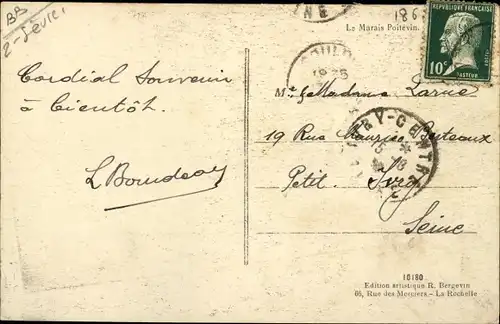 BB
2-Sevres
186
Le Marais Poitevin.
REPUBLIQUE FRANÇAISE
10c
PASTEUR
Cordial Souvenir
à bientôt.
Mr & Madame Larue
19 Rue Maurice
Petit Ivry
Seine
IVRY-CENTRE
10180
Edition artistique R. Bergevin
66, Rue des Merciers - La Rochelle